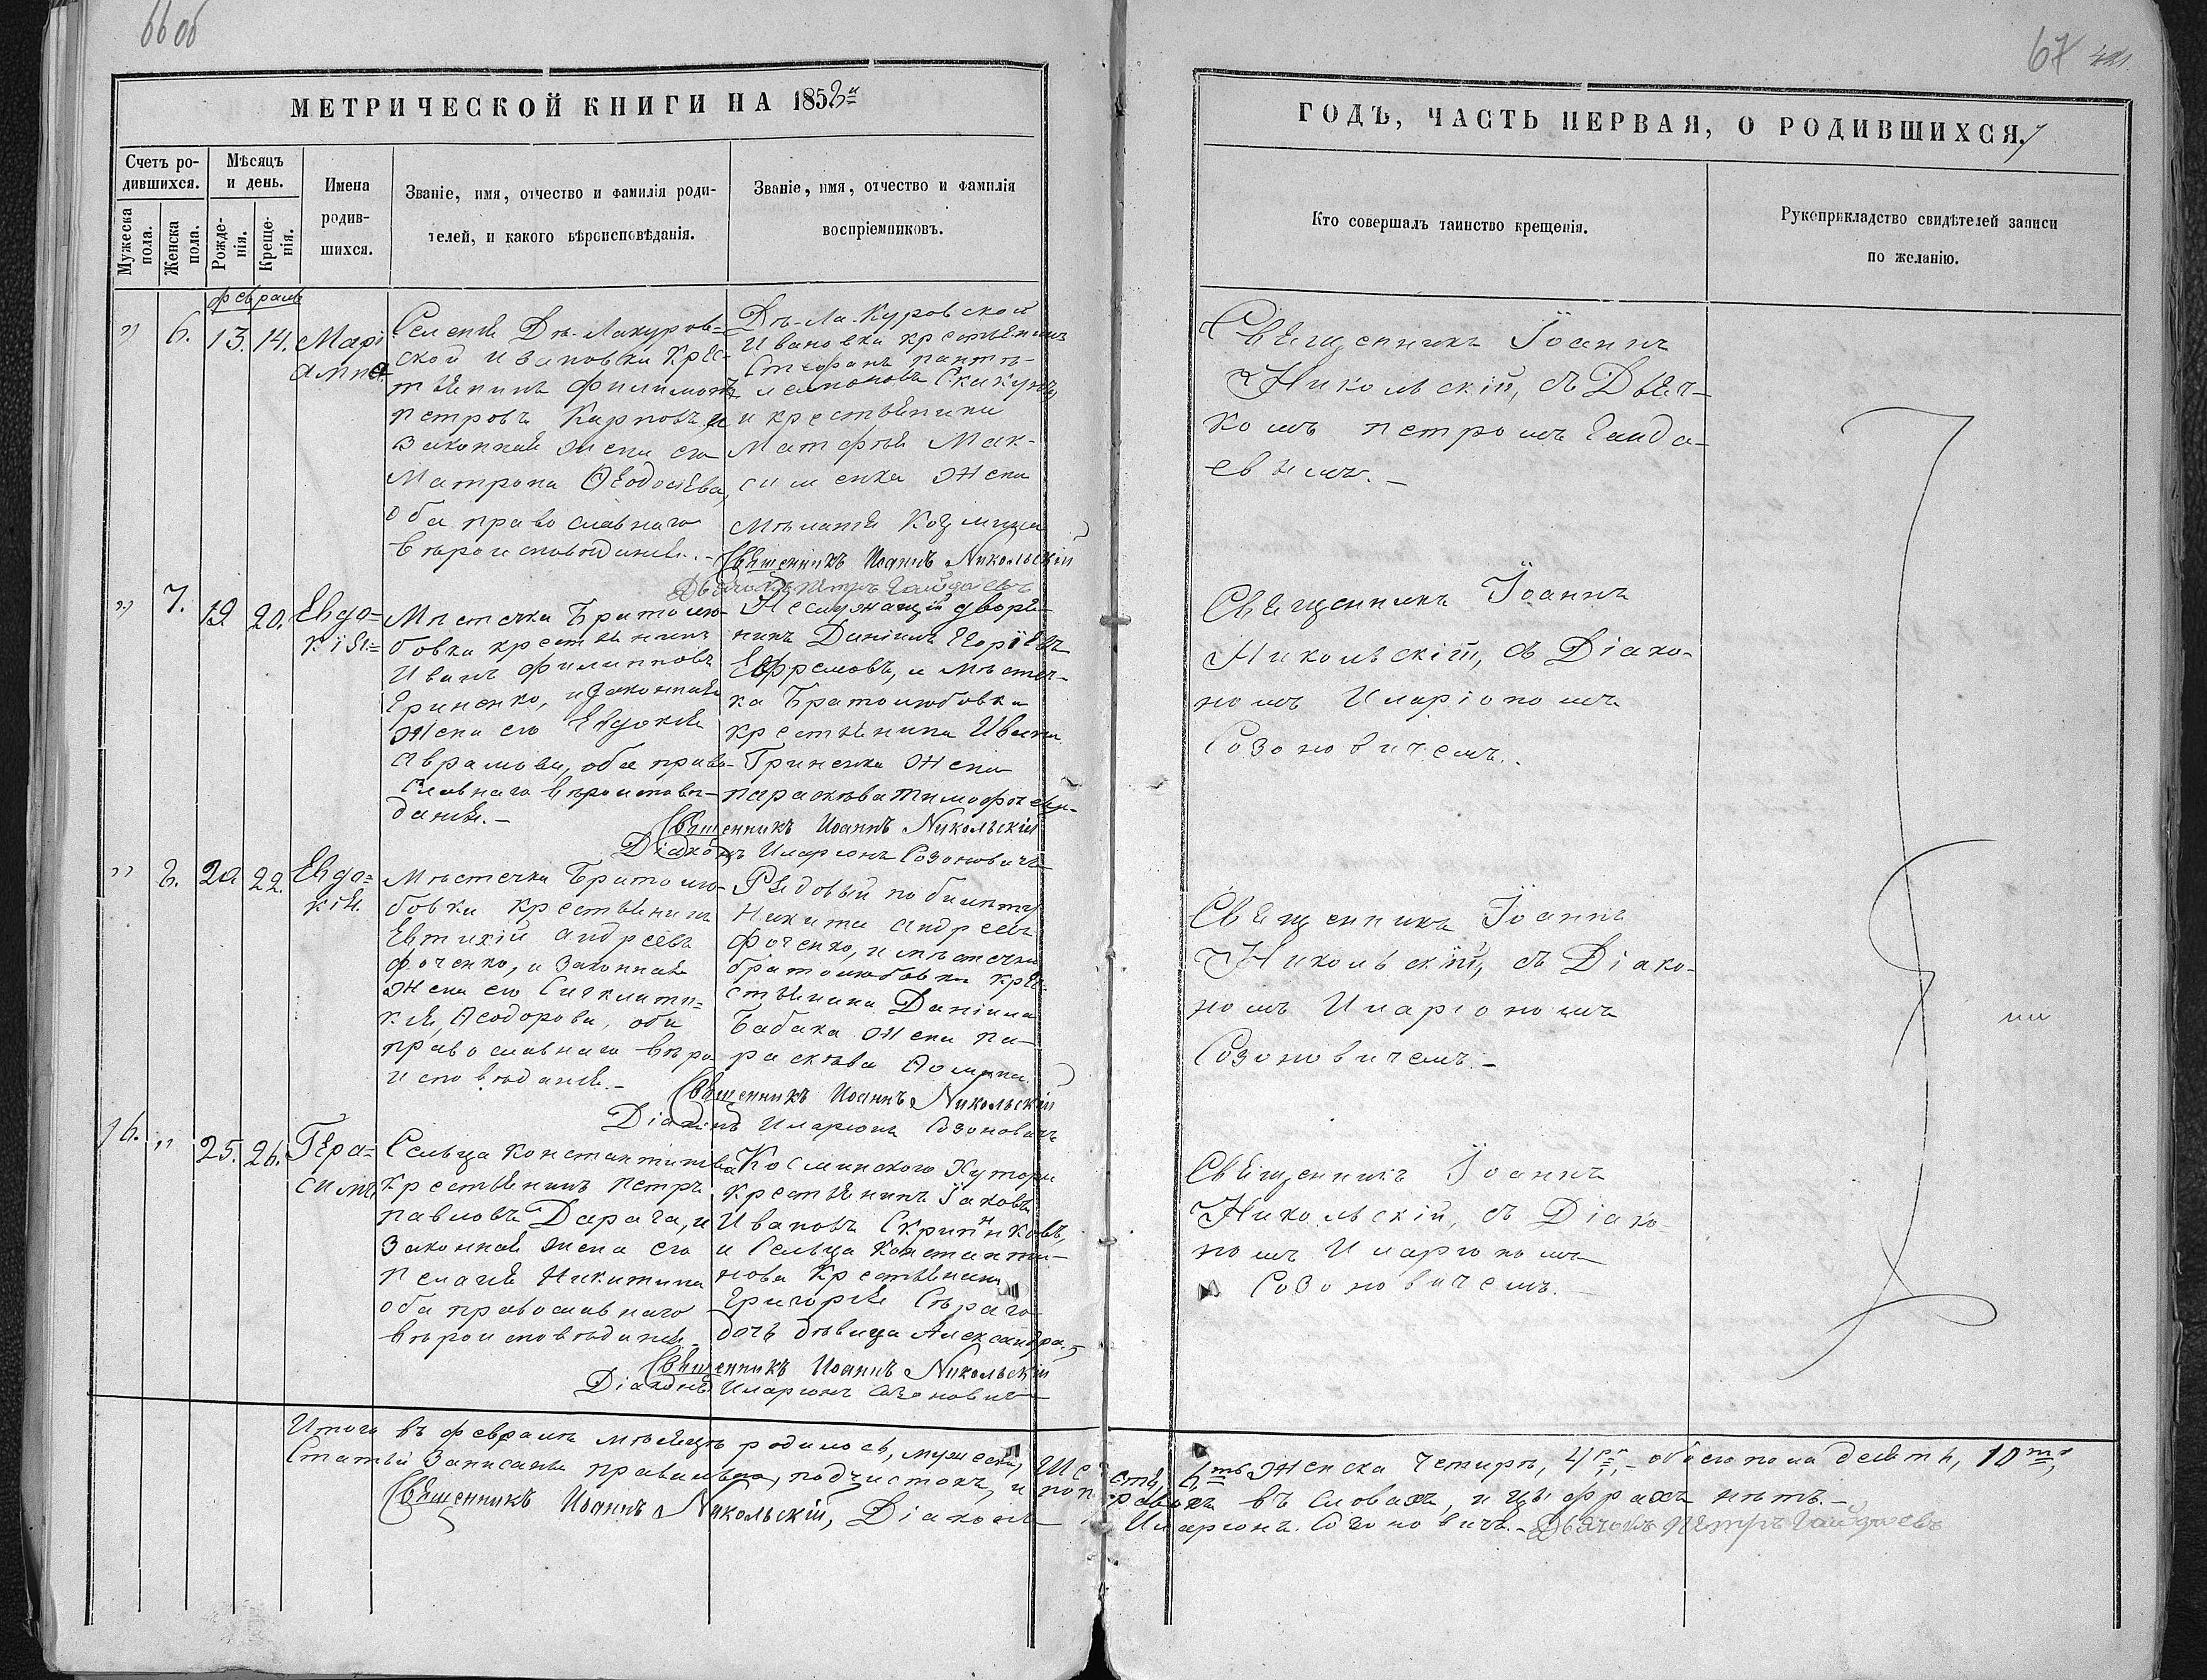 66 об
67
МЕТРИЧЕСКОЙ КНИГИ НА 1858й
ГОДЪ, ЧАСТЬ ПЕРВАЯ, О РОДИВШИХСЯ.
Счетъ ро-
дившихся.
Мужеска
пола.
Женска
пола.
Мѣсяцъ
и день.
Рожде-
нія.
Креще-
нія.
Имена
родив-
шихся.
Званіе, имя, отчество и фамилія роди-
телей, и какого вѣроисповѣданія.
Званіе, имя, отчество и фамилія
воспріемниковъ.
Кто совершалъ таинство крещенія.
Рукоприкладство свидѣтелей записи
по желанію.
февраля
" 6. 13. 14. Марі
амна
Селенія Дѣ-Лакуров-
ской Ивановки крес-
тьянинъ Филимонъ
Петровъ Карповъ и
законная жена его
Матрона Ѳеодосіева,
оба православнаго
вѣроисповѣданія.-
Дѣ-Ла-Куровской
Ивановки крестьянинъ
Стефанъ Панте-
лемоновъ Скакунъ,
и крестьянина
Матфѣя Мак-
сименка жена
Меланія Козмина
Священникъ Іоаннъ Никольскій
Дьячокъ Петръ Гайдаевъ
Священникъ Іоаннъ
Никольскій, съ Дьяч-
комъ Петромъ Гайда-
евымъ.-
" 7. 19 20. Евдо=
кія.=
Мѣстечка Братолю-
бовки крестьянинъ
Иванъ Филипповъ
Гриненко, и законная
жена его Евдокія
Аврамова, оба право-
славнаго вѣроисповѣ-
данія.-
Неслужащій дворя-
нинъ Даніилъ Егоріевъ
Ефремовъ, и мѣстеч-
ка Братолюбовки
крестьянина Ивана
Гриненка жена
Параскѣва Тимофеева-
Священникъ Иоаннъ Никольскій
Діаконъ Иларіонъ Созоновичъ
Священникъ Іоаннъ
Никольскій, съ Діако-
номъ Иларіономъ
Созоновичемъ.
" 8. 20 22. Евдо=
кія.
Мѣстечка Братолю-
бовки крестьянинъ
Евтихій Андреевъ
Фоченко, и законная
жена его Сигклити=
кія Ѳеодорова, оба
православнаго вѣро
исповѣданія.-
Рядовый по билету
Никита Андреевъ
Фоченко, и мѣстечка
Братолюбовки кре=
стьянина Даніила
Бабака жена Па-
раскѣва Ѳомина.
Священникъ Иоаннъ Никольскій
Діаконъ Иларіонъ Созоновичъ
Священникъ Іоаннъ
Никольскій, съ Діако-
номъ Иларіономъ
Созоновичемъ.-
6. " 25. 26. Гера=
симъ
Сельца Константинова
крестьянинъ Петръ
Павловъ Дарага, и
законная жена его
Пелагія Никитина
оба православнаго
вѣроисповѣданія
Космынского Хутора
крестьянинъ Іаковъ
Ивановъ Скрипниковъ,
и Сельца Константи-
нова крестьянина
Григорія Сѣраго
дочь дѣвица Александра.
Священникъ Иоаннъ Никольскій
Діаконъ Иларіонъ Созоновичъ
Священникъ Іоаннъ
Никольскій, съ Діако-
номъ Иларіономъ
Созоновичемъ.
Итого въ февралѣ мѣсяцѣ родилось, мужеска, шесть, 6ть женска четыре, 4ре,- обоего пола десять, 10ть,
Статьи записаны правильно, подчистокъ, и поправокъ въ словахъ, и цыфрахъ нѣтъ.-
Священникъ Иоаннъ Никольскій, Діаконъ Иларіонъ Созоновичъ.- Дьячокъ Петръ Гайдаевъ